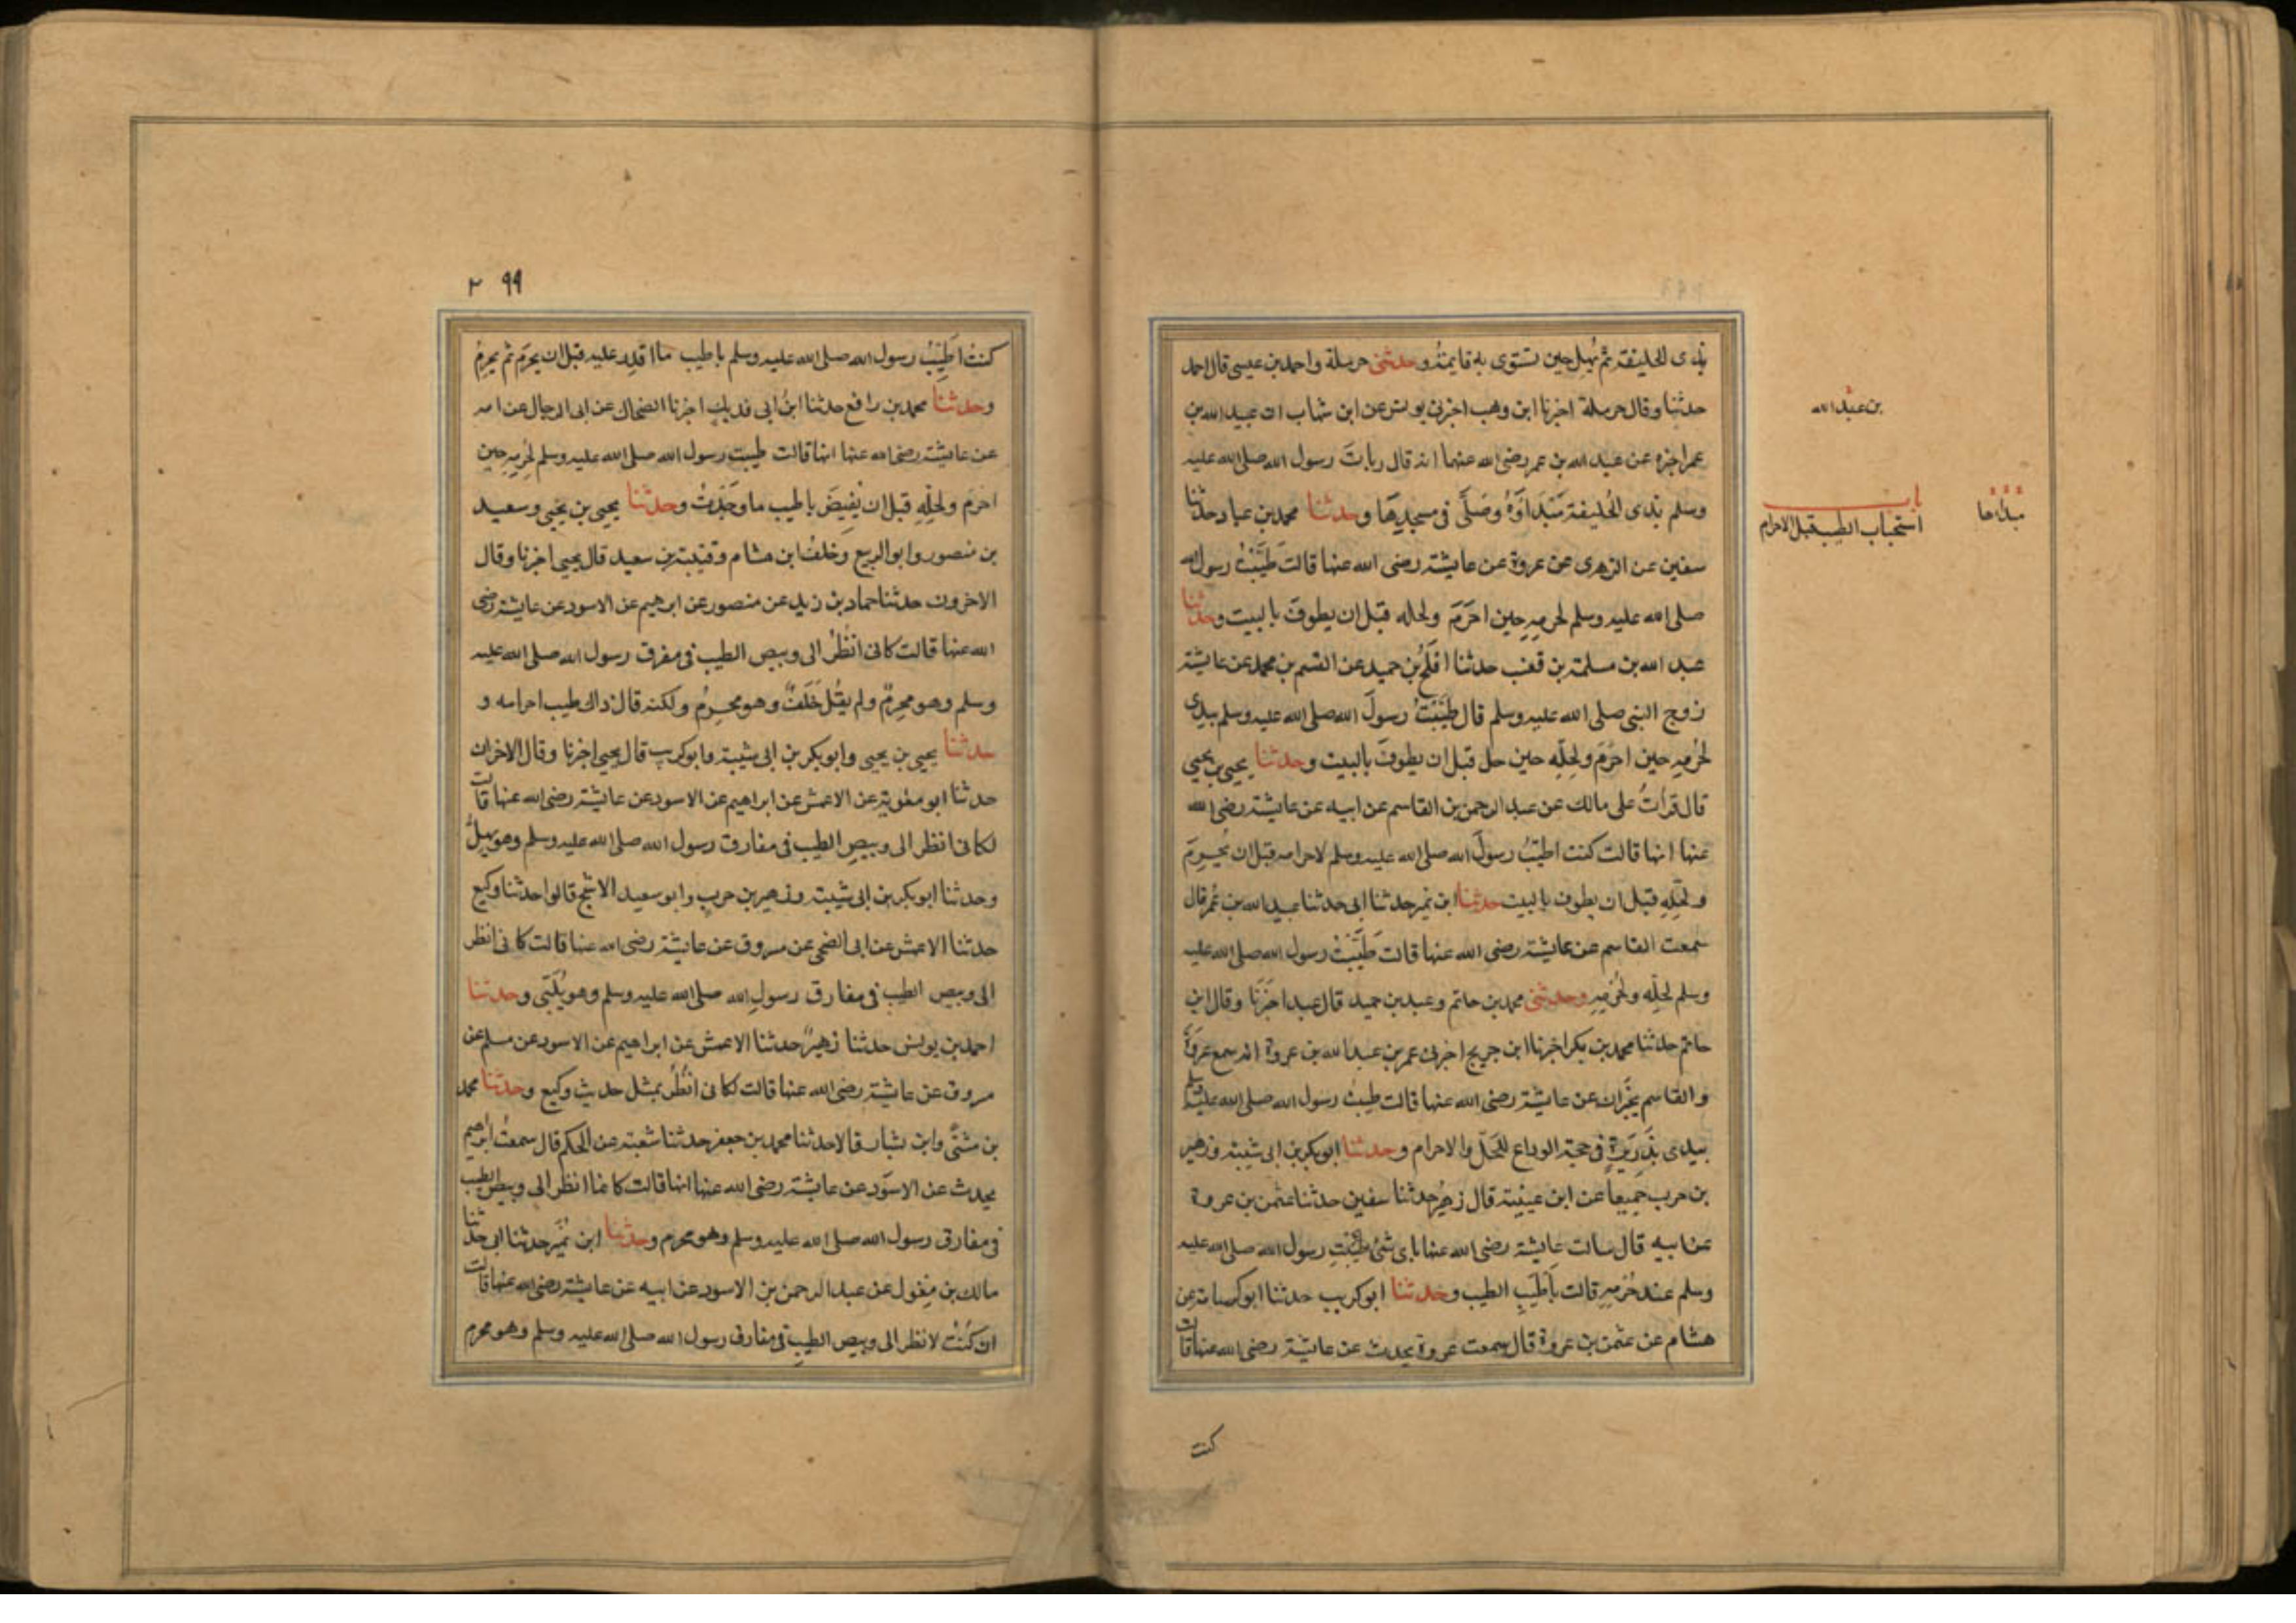 بذى الحليفة ثم يُهِل حين تستوى به قايمةً وحدثنى حرملة واحمد بن عيسى قال احمد
حدثنا وقال حرملة اخبرنا ابن وهب اخبرنى يونس عن ابن شهاب ان عبيد الله بن
عمر اخبره عن عبد الله بن عمر رضى الله عنهما انه قال باتَ رسول الله صلى الله عليه
وسلم بذى الحُليفة مَبْدَاؤَهُ وصَلَّى فى مسجدِهَا وحدثنا محمد بن عباد حدثنا
سفين عن الزهرى عن عروة عن عايشة رضى الله عنها قالت طَيَّبْتُ رسول الله
صلى الله عليه وسلم لحرمِهِ حين احَرَمَ ولحله قبل ان يطوفَ بالبيت وحدثنا
عبد الله بن مسلمة بن قعنب حدثنا افلَحُ بن حميد عن القسم بن محمد عن عايشة
زوج النبى صلى الله عليه وسلم قال طَيَّبْتُ رسولَ الله صلى الله عليه وسلم بيدى
لحُرمِهِ حين احْرَمَ ولِحِلِّهِ حين حل قبل ان يطوفَ بالبيت وحدثنا يحيى بن يحيى
قال قرأتُ على مالك عن عبد الرحمن بن القاسم عن ابيه عن عايشة رضى الله
عنها انها قالت كنت اطيّبُ رسولَ الله صلى الله عليه وسلم لاحرامه قبل ان يُحرِمَ
ولحِلِّهِ قبل ان يطوف بالبيت حدثنا ابن نمير حدثنا ابى حدثنا عبيد الله بن عُمر قال
سمعت القاسم عن عايشة رضى الله عنها قالت طَيَّبْتُ رسول الله صلى الله عليه
وسلم لحِلِّه ولحُرمِهِ وحدثنى محمد بن حاتم وعبد بن حميد قال عبد اخبَرَنَا وقال ابن
حاتم حدثنا محمد بن بكر اخبرنا ابن جريج اخبرنى عمر بن عبد الله بن عروة انه سمع عروةَ
والقاسم يخبّران عن عايشة رضى الله عنها قالت طيبتُ رسول الله صلى الله عليه وسلم
بيدى بذَرِيرَةٍ فى حجة الوداع للحَلّ والاحرام وحدثنا ابو بكر بن ابى شيبة وزهير
بن حرب جميعاً عن ابن عيينة قال زهيرٌ حدثنا سفين حدثنا عثمن بن عروة
عن ابيه قال سالت عايشة رضى الله عنها باى شئ طيَّبْتِ رسول الله صلى الله عليه
وسلم عند حُرمِهِ قالت باَطيَبِ الطيب وحدثنا ابو كريب حدثنا ابو اسامة عن
هشام عن عثمن بن عروة قال سمعت عروة يحدث عن عايشة رضى الله عنها قالت
كنت
بن عبد الله
باب
استحباب الطيب قبل الاحرام
٢٩٩
كنتُ اطَيِّبُ رسول الله صلى الله عليه وسلم باطيب ما اقدِر عليه قبل ان يحرِمَ ثم يحرِمُ
وحدثنا محمد بن رافع حدثنا ابنُ ابى فديك اخبرنا الضحاك عن ابى الرجال عن امه
عن عايشة رضى الله عنها انها قالت طيبت رسول الله صلى الله عليه وسلم لحُرمِهِ حين
احرم ولحلِّهِ قبل ان يُفيضَ باطيب ما وجَدْتُ وحدثنا يحيى بن يحيى وسعيد
بن منصور وابو الربيع وخلفُ ابن هشام وقتيبة بن سعيد قال يحيى اخبرنا وقال
الاخرون حدثنا حماد بن زيد عن منصور عن ابرهيم عن الاسود عن عايشة رضى
الله عنها قالت كانى انظُرُ الى وبيص الطيب فى مفرق رسول الله صلى الله عليه
وسلم وهو محرمٌ ولم يقُل خَلَفٌ وهو محرِمٌ ولكنه قال ذاك طيب احرامه و
حدثنا يحيى بن يحيى وابو بكر بن ابى شيبة وابو كريب قال يحيى اخبرنا وقال الاخران
حدثنا ابو معوية عن الاعمش عن ابراهيم عن الاسود عن عايشة رضى الله عنها قالت
لكانى انظر الى وبيصِ الطيب فى مفارق رسول الله صلى الله عليه وسلم وهو يهِلُّ
وحدثنا ابو بكر بن ابى شيبة وزهير بن حرب وابو سعيد الاشج قالوا حدثنا وكيع
حدثنا الاعمش عن ابى الضحى عن مسروق عن عايشة رضى الله عنها قالت كانى انظر
الى وبيص الطيب فى مفارق رسولِ الله صلى الله عليه وسلم وهو يُلَبِّى وحدثنا
احمد بن يونس حدثنا زهيرٌ حدثنا الاعمش عن ابراهيم عن الاسود عن مسلم عن
مروق عن عايشة رضى الله عنها قالت لكانى انظُرُ بمثل حديث وكيع وحدثنا محمد
بن مثنَّى وابن بشار قالا حدثنا محمد بن جعفر حدثنا شعبة عن الحكم قال سمعتُ ابرهيم
يحدث عن الاسوَد عن عايشة رضى الله عنها انها قالت كانما انظر الى وبيص الطيب
فى مفارق رسول الله صلى الله عليه وسلم وهو محرم وحدثنا ابن نُمَير حدثنا ابى حدثنا
مالك بن مِغول عن عبد الرحمن بن الاسود عن ابيه عن عايشة رضى الله عنها قالت
ان كنْتُ لانظر الى وبيص الطيبِ فى مفارق رسول الله صلى الله عليه وسلم وهو محرم